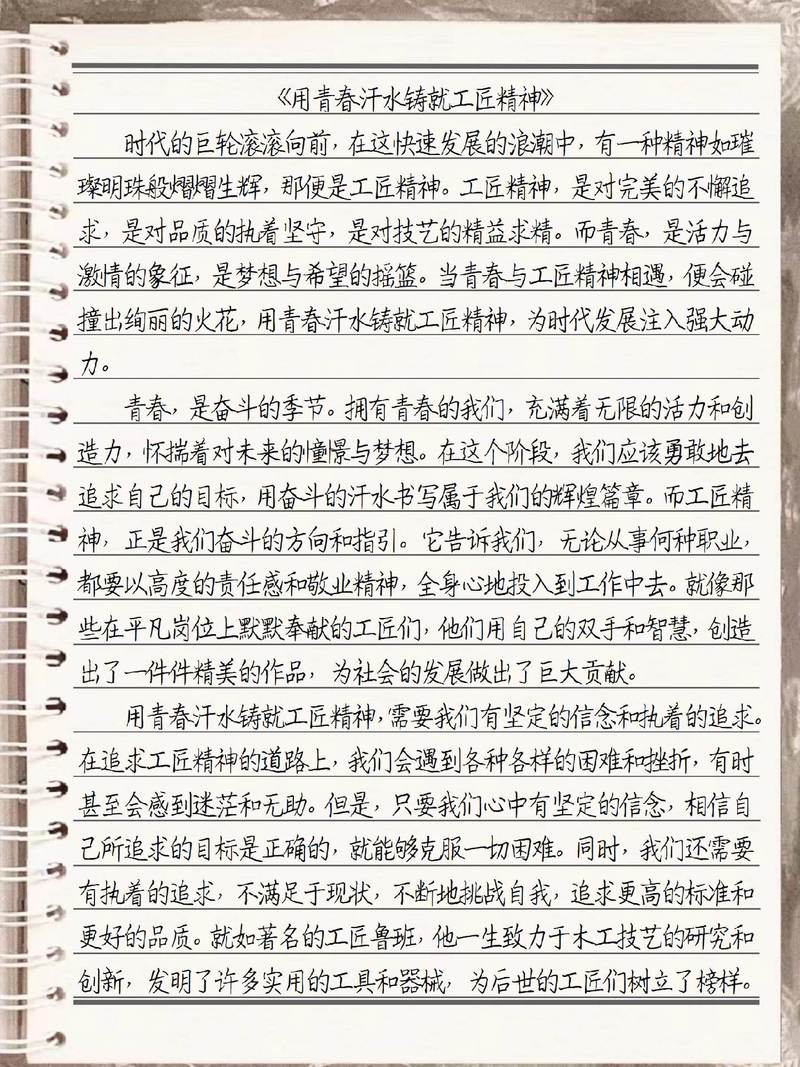 《用青春汗水铸就工匠精神》
时代的巨轮滚滚向前，在这快速发展的浪潮中，有一种精神如璀
璨明珠般熠熠生辉，那便是工匠精神。工匠精神，是对完美的不懈追
求，是对品质的执着坚守，是对技艺的精益求精。而青春，是活力与
激情的象征，是梦想与希望的摇篮。当青春与工匠精神相遇，便会碰
撞出绚丽的火花，用青春汗水铸就工匠精神，为时代发展注入强大动
力。
青春，是奋斗的季节。拥有青春的我们，充满着无限的活力和创
造力，怀揣着对未来的憧憬与梦想。在这个阶段，我们应该勇敢地去
追求自己的目标，用奋斗的汗水书写属于我们的辉煌篇章。而工匠精
神，正是我们奋斗的方向和指引。它告诉我们，无论从事何种职业，
都要以高度的责任感和敬业精神，全身心地投入到工作中去。就像那
些在平凡岗位上默默奉献的工匠们，他们用自己的双手和智慧，创造
出了一件件精美的作品，为社会的发展做出了巨大贡献。
用青春汗水铸就工匠精神，需要我们有坚定的信念和执着的追求。
在追求工匠精神的道路上，我们会遇到各种各样的困难和挫折，有时
甚至会感到迷茫和无助。但是，只要我们心中有坚定的信念，相信自
己所追求的目标是正确的，就能够克服一切困难。同时，我们还需要
有执着的追求，不满足于现状，不断地挑战自我，追求更高的标准和
更好的品质。就如著名的工匠鲁班，他一生致力于木工技艺的研究和
创新，发明了许多实用的工具和器械，为后世的工匠们树立了榜样。